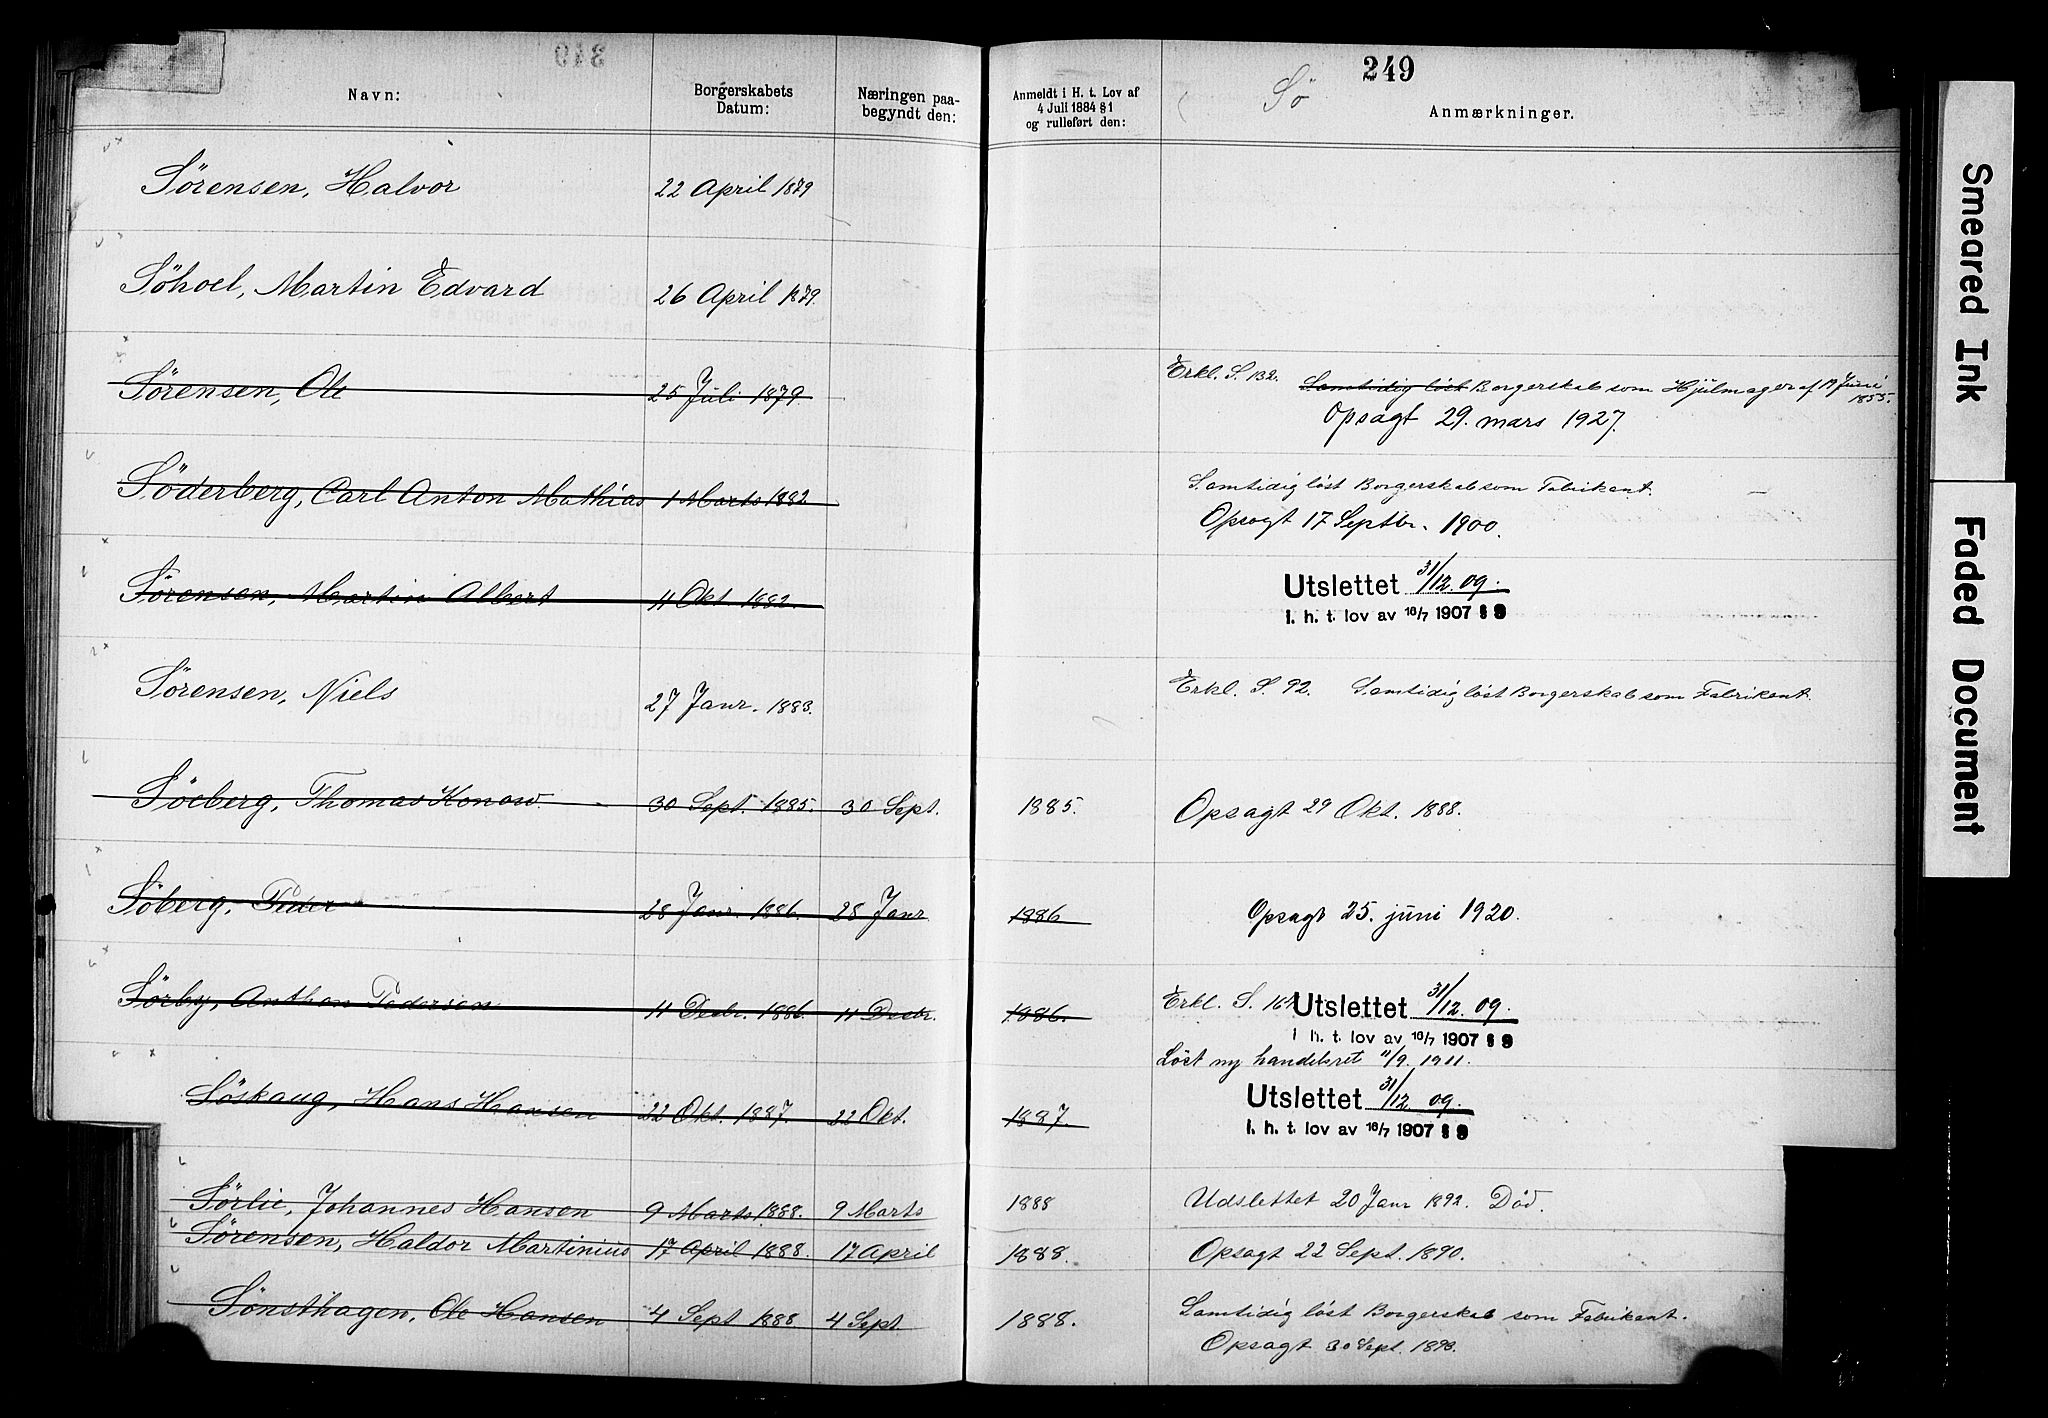 249
Sö
Navn: Borgerskabets Datum: Næringen paa- begyndt den: Anmeldt i H. t. Lov af 4 Juli 1884 § 1 og rulleført den: Anmærkninger.
Sørensen, Halvor 22 April 1879
Söhoel, Martin Edvard 26 April 1879.
Sørensen, Ole 25 Juli 1879. Erkl. S. 132. Samtidig löst Borgerskab som Hjulmager af 19 Juni 1855.
Opsagt 29. mars 1927.
Söderberg, Carl Anton Mathias 1 Marts 1882 Samtidig löst Borgerskab som Fabrikant.
Opsagt 17 Septbr. 1900.
Sørensen, Martin Albert 11 Okt. 1882. Utslettet 31/12. 09.
I. h. t. lov av 16/7 1907 § 9
Sørensen, Niels 27 Janr. 1883. Erkl. S. 92. Samtidig löst Borgerskab som Fabrikant.
Söeberg, Thomas Konow. 30 Sept. 1885. 30 Sept. 1885. Opsagt 29 Okt. 1888.
Söberg, Peder 28 Janr. 1886. 28 Janr 1886 Opsagt 25. juni 1920.
Sörby, Anthon Pedersen 11 Decbr. 1886. 11 Decbr. 1886. Erkl. S. Utslettet 31/12. 09.
I h. t. lov av 16/7 1907 § 9
Löst ny handelsret 11/9. 1911.
Söskaug, Hans Hansen 22 Okt. 1887. 22 Okt. 1887. Utslettet 31/12 09.
I. h. t. lov av 16/7 1907 § 9
Sörlie, Johannes Hansen 9 Marts 1888. 9 Marts 1888 Udslettet 20 Janr 1892. Död.
Sørensen, Haldor Martinius 17 April 1888. 17 April 1888. Opsagt 22 Sept. 1890.
Sönsthagen, Ole Hansen 4 Sept 1888. 4 Sept. 1888. Samtidig löst Borgerskab som Fabrikant.
Opsagt 30 Sept. 1893.
Smeared Ink
Faded Document